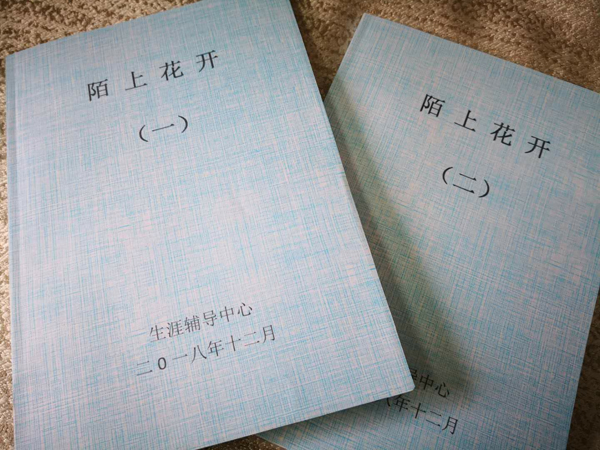 陌上花开
（一）
生涯辅导中心
二0一八年十二月
陌上花开
（二）
导中心
八年十二月